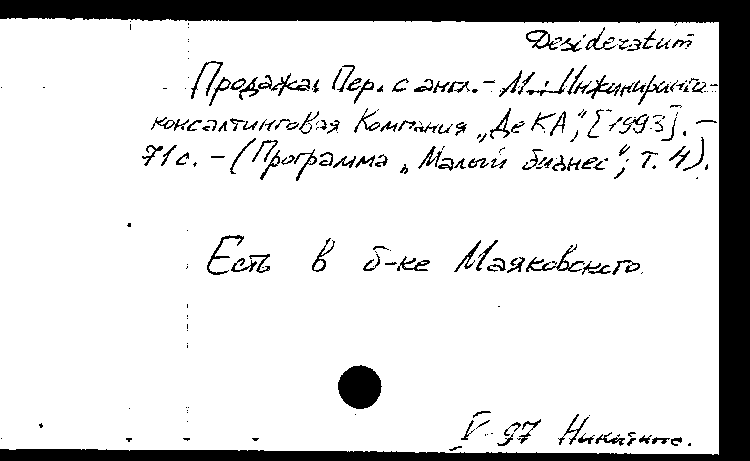 Desideratum
Продажа. Пер. с англ. – М.: Инжиниринго-
консалтинговая Компания „ДеКА“, [1993]. –
71 с. – (Программа „Малый бизнес“; т. 4).
Есть в б-ке Маяковского.
V-97